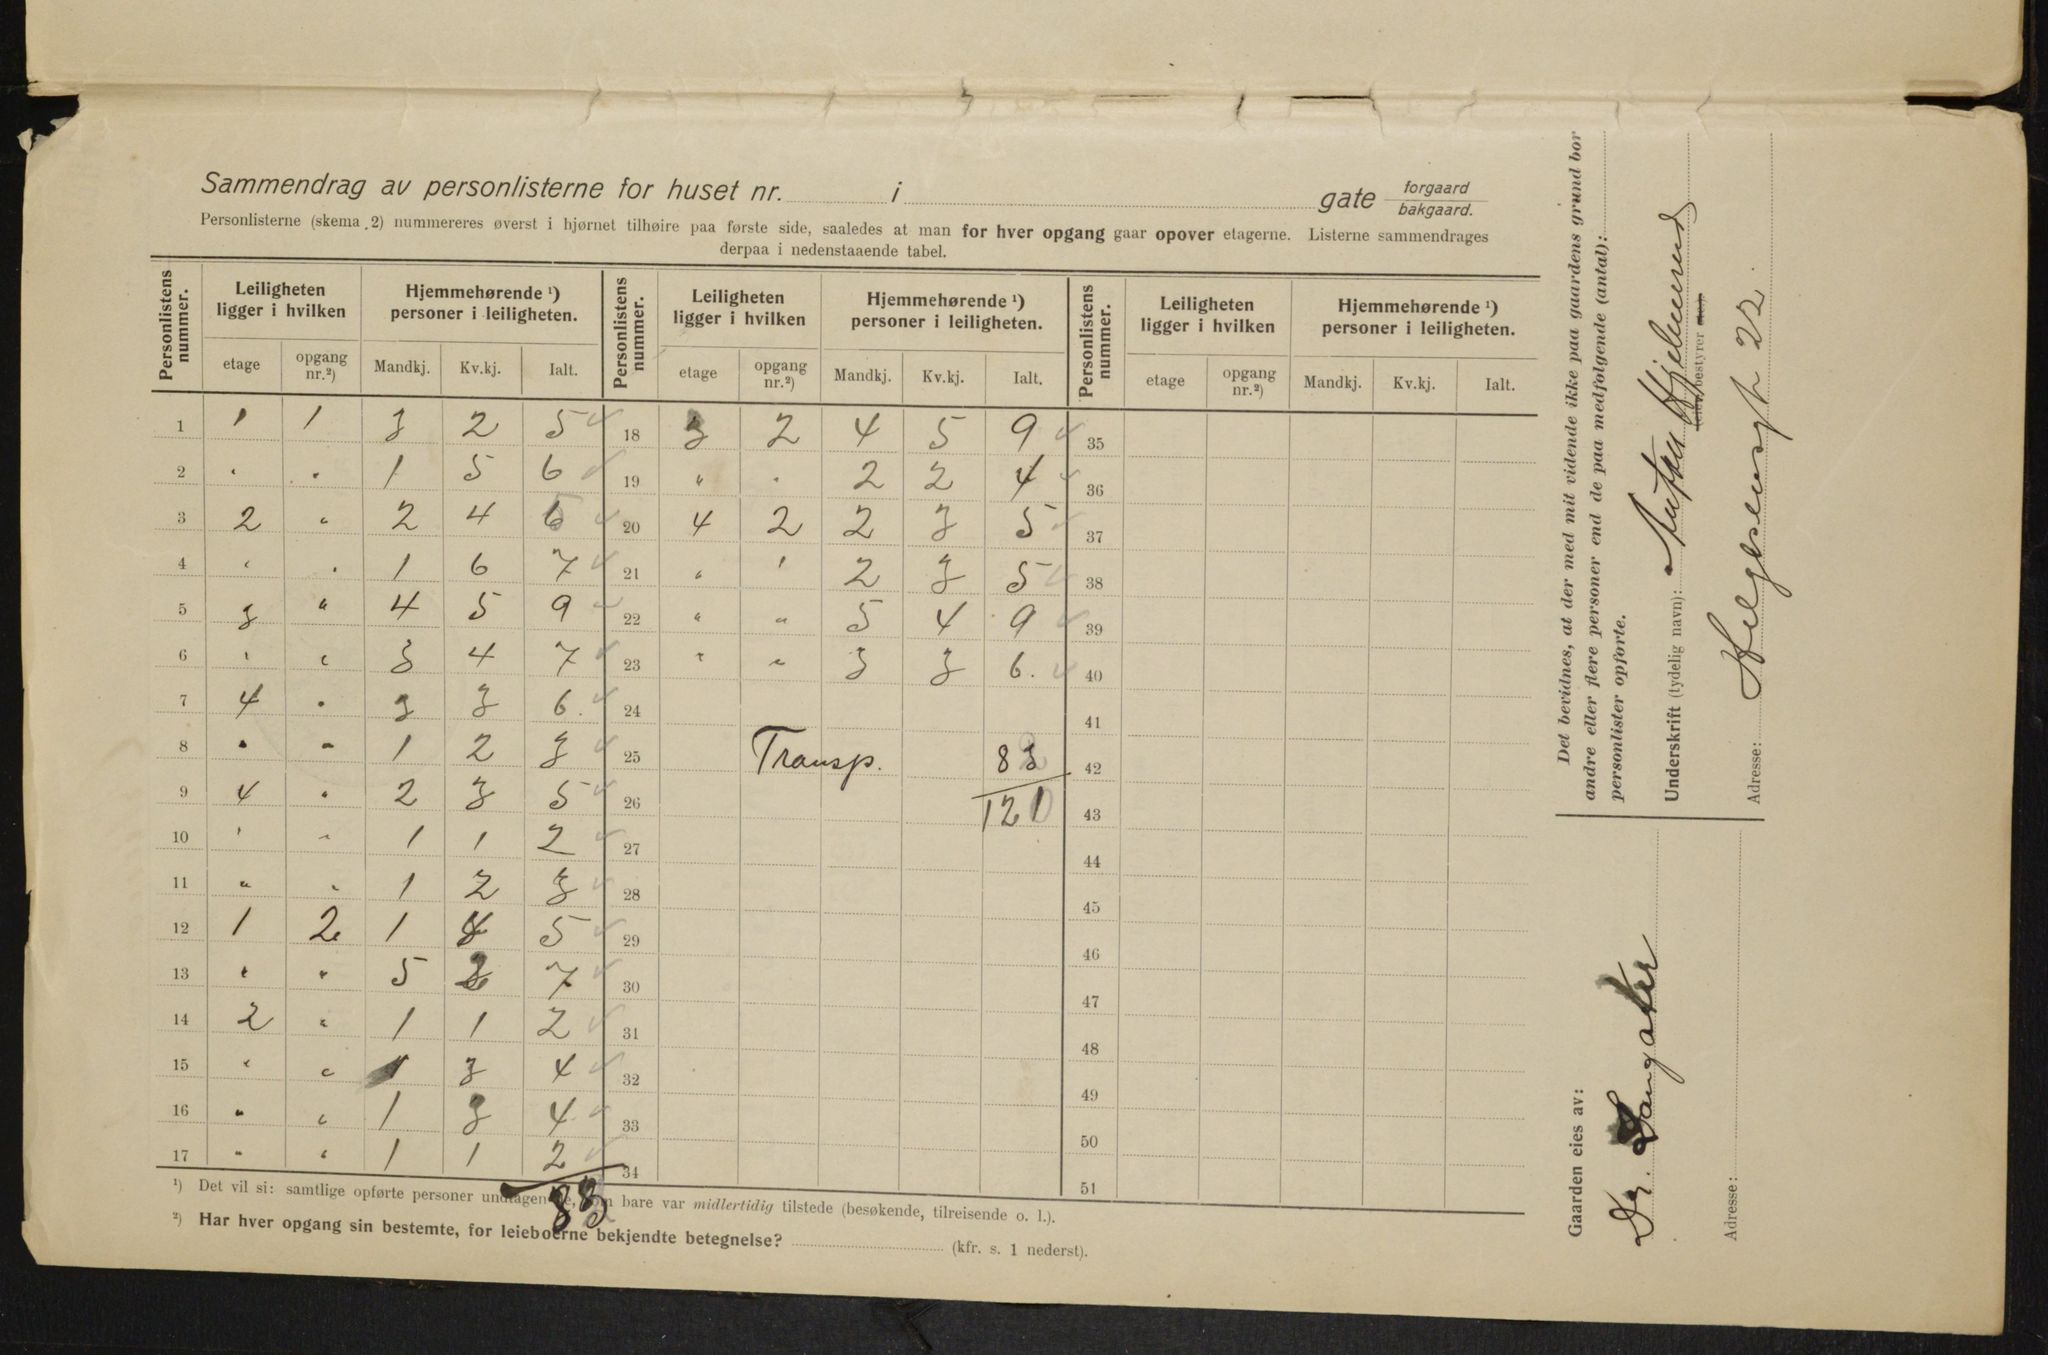 Sammendrag av personlisterne for huset nr. i gate forgaard bakgaard.
Personlisterne (skema 2) nummereres øverst i hjørnet tilhøire paa første side, saaledes at man for hver opgang gaar opover etagerne. Listerne sammendrages
derpaa i nedenstaaende tabel.
Personlistens nummer. Leiligheten ligger i hvilken Hjemmehørende ¹) personer i leiligheten. Personlistens nummer. Leiligheten ligger i hvilken Hjemmehørende ¹) personer i leiligheten. Personlistens nummer. Leiligheten ligger i hvilken Hjemmehørende ¹) personer i leiligheten.
etage opgang nr.²) Mandkj. Kv.kj. Ialt. etage opgang nr.²) Mandkj. Kv.kj. Ialt. etage opgang nr.²) Mandkj. Kv.kj. Ialt.
1 1 1 3 2 5 18 3 2 4 5 9 35
2 " " 1 5 6 19 " " 2 2 4 36
3 2 " 2 4 6 20 4 2 2 3 5 37
4 " " 1 6 7 21 " " 2 3 5 38
5 3 " 4 5 9 22 " " 5 4 9 39
6 " " 3 4 7 23 " " 3 3 6. 40
7 4 " 3 3 6. 24 41
8 " " 1 2 3 25 Transp. 83 42
9 4 " 2 3 5 26 121 43
10 " " 1 1 2 27 44
11 " " 1 2 3 28 45
12 1 2 1 4 5 29 46
13 " " 5 2 7 30 47
14 2 " 1 1 2 31 48
15 " " 1 3 4 32 49
16 " " 1 3 4 33 50
17 " " 1 1 2 34 51
83
¹) Det vil si: samtlige opførte personer undtagen de, som bare var midlertidig tilstede (besøkende, tilreisende o. l.).
²) Har hver opgang sin bestemte, for leieboerne bekjendte betegnelse? (kfr. s. 1 nederst).
Det bevidnes, at der med mit vidende ikke paa gaardens grund bor
andre eller flere personer end de paa medfølgende (antal):
personlister opførte.
Underskrift (tydelig navn): Anton Hjelmerud
bestyrer
Adresse: Helgesensgt 22.
Gaarden eies av:
Dr. Langaker
Adresse: